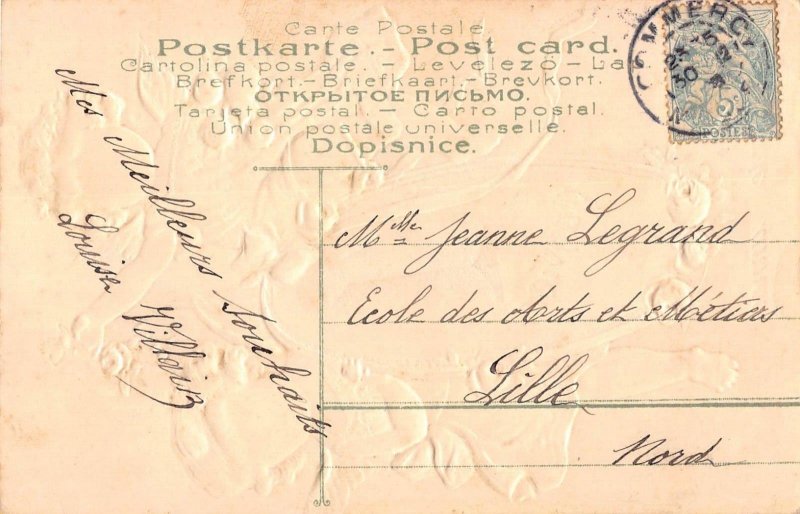 Carte Postale
Postkarte. - Post card.
Cartolina postale. - Levelező - La
Brefkort. - Briefkaart. - Brevkort.
ОТКРЫТОЕ ПИСЬМО.
Tarjeta postal. - Carto postal.
Union postale universelle.
Dopisnice.
COMMERCY
POSTES
Mes Meilleurs Souhaits
Louise Villain
Mlle Jeanne Legrand
Ecole des Arts et Métiers
Lille
Nord